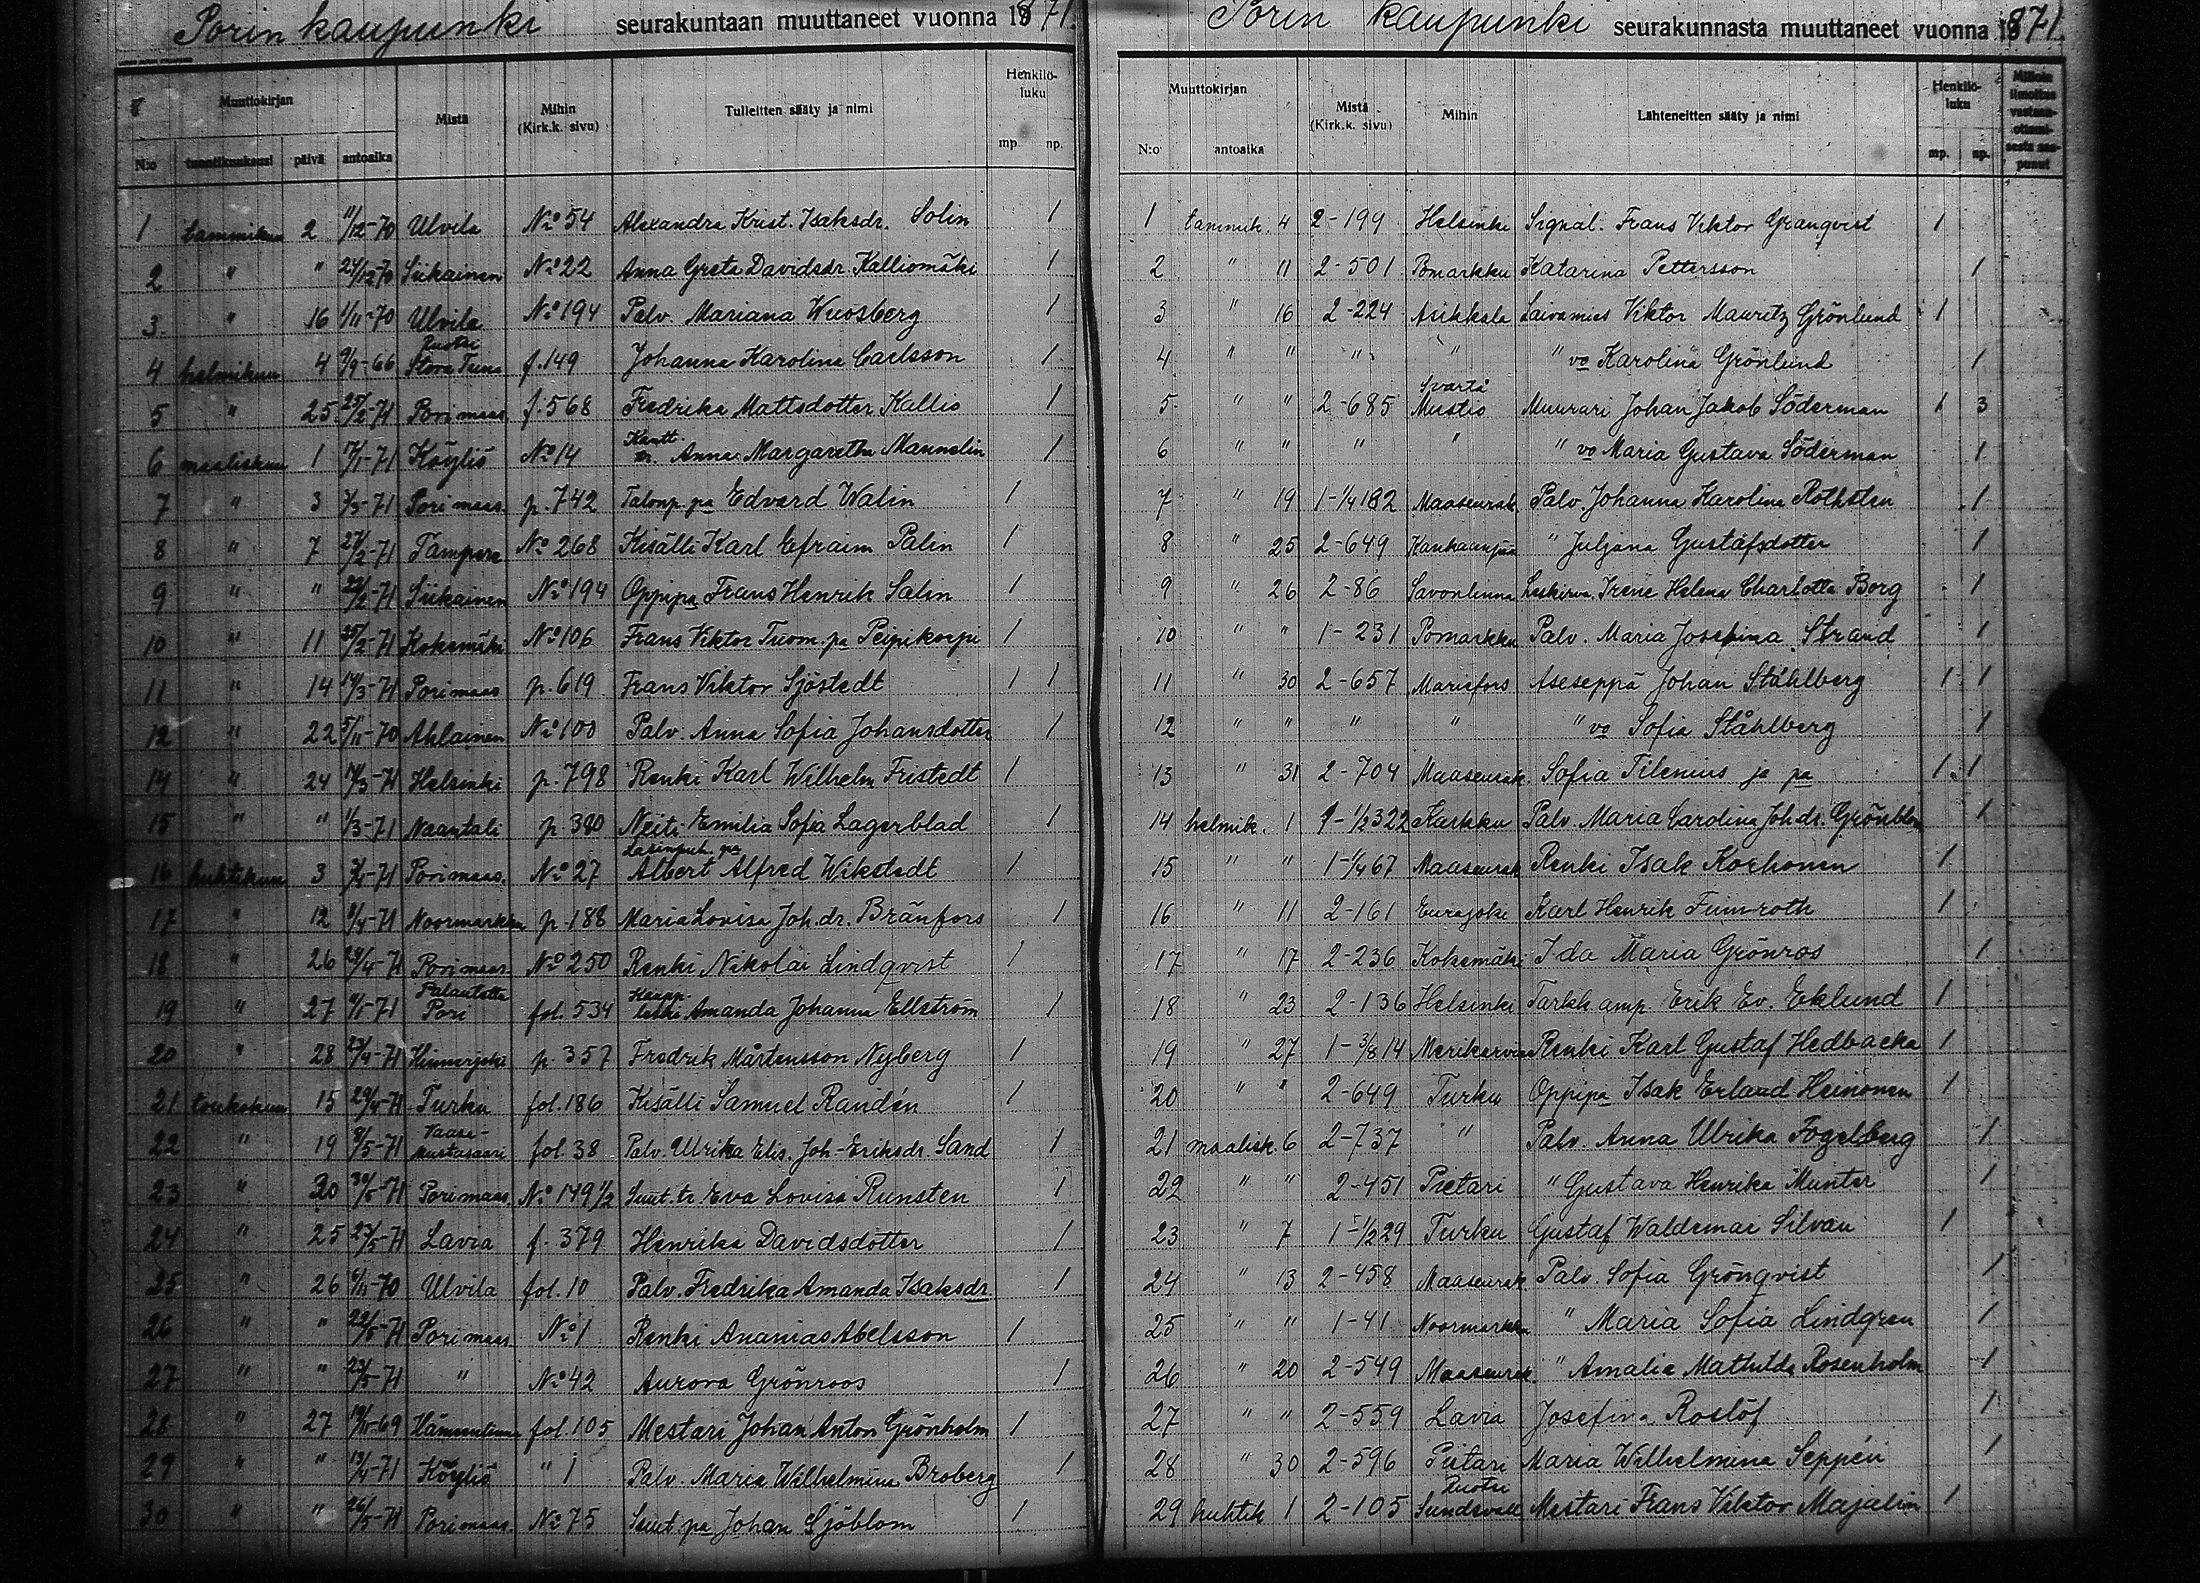 Porin kaupunki seurakuntaan muuttaneet vuonna 1871.
Muuttokirjan Mistä Mihin (Kirk.k. sivu) Tulleitten sääty ja nimi Henkilö-luku
N:o tuontikuukausi päivä antoaika mp. np.
1 tammikuu 2 11/12-70 Ulvila No 54 Alexandra Krist. Isaksdr. Solin 1
2 " " 24/12 70 Siikainen No 22 Anna Greta Davidsdr. Kalliomäki 1
3 " 16 1/11-70 Ulvila No 194 Palv. Mariana Wuosberg 1
4 helmikuu 4 9/9-66 Ruotsi Stora Tuna f. 149 Johanna Karolina Carlsson 1
5 " 25 25/2-71 Pori maas. f. 568 Fredrika Mattsdotter Kallio 1
6 maaliskuu 1 17/1-71 Köyliö No 14 Anna Margaretha Mannelin 1
7 " 3 3/3-71 Pori maas. p. 742 Talonp. pa Edvard Walin 1
8 " 7 27/2-71 Tampere No 268 Kisälli Karl Efraim Palin 1
9 " " 22/2-71 Siikainen No 194 Oppipa Frans Henrik Salin 1
10 " 11 25/2-71 Kokemäki No 106 Frans Viktor Tuom. pa Peipikorpi 1
11 " 14 14/3-71 Pori maas p. 619 Frans Viktor Sjöstedt 1 1
12 " 22 5/11-70 Ahlainen No 100 Palv. Anna Sofia Johansdotter 1
14 " 24 14/3-71 Helsinki p. 798 Renki Karl Wilhelm Fristedt 1
15 " " 1/3-71 Naantali p. 380 Neiti Emilia Sofia Lagerblad 1
16 huhtikuu 3 -71 Pori maas. No 27 Albert Alfred Wikstedt 1
17 " 12 -71 Noormarkku p. 188 Maria Lovisa Joh.dr. Bränfors 1
18 " 26 -71 Pori maas. No 250 Renki Nikolai Lindqvist 1
19 " 27 -71 Palautettu Pori fol. 534 Kaupp. leski Amanda Johanna Ellström 1
20 " 28 -71 Kinnerjoki p. 357 Fredrik Mårtensson Nyberg 1
21 toukokuu 15 29/4-71 Turku fol. 186 Kisälli Samuel Randén 1
22 " 19 9/5-71 Vaasa-mustasaari fol. 38 Palv. Ulrika Elis. Joh-Eriksdr. Sand 1
23 " 20 -71 Pori maas. No 149 1/2 Suut. tr Eva Lovisa Runsten 1
24 " 25 23/5-71 Lavia f. 379 Henrika Davidsdotter 1
25 " 26 6/11-70 Ulvila fol. 10 Palv. Fredrika Amanda Isaksdr 1
26 " " 22/5-71 Pori maas No 1 Renki Ananias Abelsson 1
27 " " 23/5-71 " No 42 Aurora Grönroos 1
28 " 27 -69 Hämeenlinna fol. 105 Mestari Johan Anton Grönholm 1
29 " " 13/4-71 Köyliö " 1 Palv. Maria Wilhelmina Broberg 1
30 " " 26/5-71 Pori maas. No 75 Suut. pa Johan Sjöblom 1
Porin kaupunki seurakunnasta muuttaneet vuonna 1871.
Muuttokirjan Mistä (Kirk.k. sivu) Mihin Lähteneitten sääty ja nimi Henkilö-luku Milloin ilmoitus vastaan-ottami-sesta saa-punut
N:o antoaika mp. np.
1 tammik. 4 2-199 Helsinki Signal. Frans Viktor Granqvist 1
2 " 11 2-501 Pomarkku Katarina Pettersson 1
3 " 16 2-224 Asikkala Laivamies Viktor Mauritz Grönlund 1
4 " " " " " vo Karolina Grönlund 1
5 " " 2-685 Svartå Mustio Muurari Johan Jakob Söderman 1 3
6 " " " " " vo Maria Gustava Söderman 1
7 " 19 1-1/4 182 Maaseurak Palv. Johanna Karolina Rothsten 1
8 " 25 2-649 Kankaanpää " Juljana Gustafsdotter 1
9 " 26 2-86 Savonlinna Leskirva. Irene Helena Charlotta Borg 1
10 " " 1-231 Pomarkku Palv. Maria Josefina Strand 1
11 " 30 2-657 Mariefors Aseseppä Johan Ståhlberg 1 1
12 " " " " " vo Sofia Ståhlberg 1
13 " 31 2-704 Maaseurak Sofia Tilenius ja pa 1 1
14 helmik. 1 1-1/2 322 Karkku Palv. Maria Carolina Joh.dr. Grönblom 1
15 " " 1-1/4 67 Maaseurak Renki Isak Korhonen 1
16 " 11 2-161 Eurajoki Karl Henrik Fimroth 1
17 " 17 2-236 Kokemäki Ida Maria Grönros 1
18 " 23 2-136 Helsinki Tarkk amp. Erik Ev. Eklund 1
19 " 27 1-3/8 14 Merikarvia Renki Karl Gustaf Hedbacka 1
20 " " 2-649 Turku Oppipa Isak Erland Heinonen 1
21 maalisk. 6 2-737 " Palv. Anna Ulrika Fogelberg 1
22 " " 2-451 Pietari " Gustava Henrika Munter 1
23 " 7 1-1/2 29 Turku Gustaf Waldemar Silvan 1
24 " 13 2-458 Maaseurak Palv. Sofia Grönqvist 1
25 " " 1-41 Noormarkku " Maria Sofia Lindgren 1
26 " 20 2-549 Maaseurak " Amalia Mathilda Rosenholm 1
27 " " 2-559 Lavia Josefina Roslöf 1
28 " 30 2-596 Pietari Maria Wilhelmina Seppén 1
29 huhtik 1 2-105 Ruotsi Sundsvall Mestari Frans Viktor Majalin 1